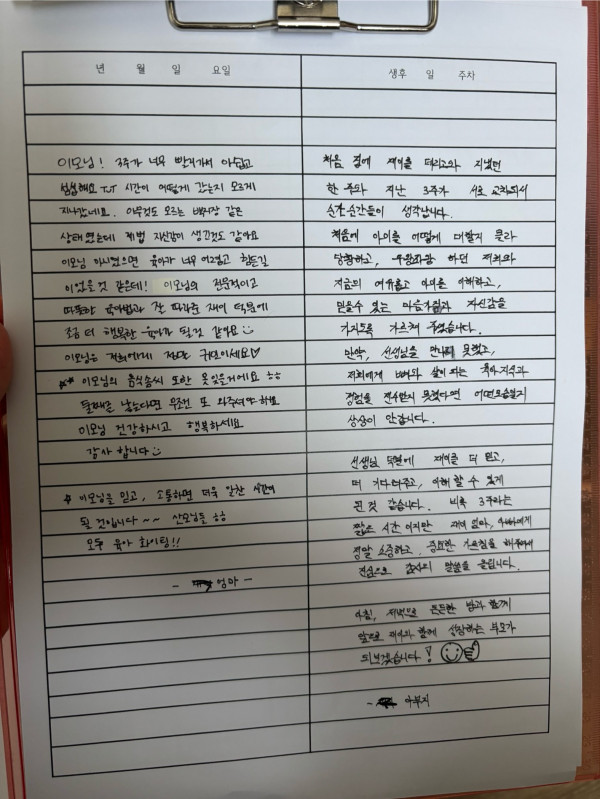 년 월 일 요일
이모님! 3주가 너무 빨지가서 아쉽고
섭섭해요 ㅜㅜ 시간이 어떻게 갔는지 모르게
지나갔네요. 아무것도 모르는 백지장 같은
상태였는데 제법 자신감이 생긴것도 같아요
이모님 아니였으면 육아가 너무 어렵고 힘든길
이었을것 같은데! 이모님의 전문적이고
따뜻한 육아법과 잘 따라준 재이 덕분에
조금 더 행복한 육아가 될것 같아요
이모님은 저희에게 정말 귀인이세요♡
** 이모님의 음식솜씨 또한 못잊을거에요 ㅎㅎ
둘째를 낳는다면 무조건 또 와주셔야해요
이모님 건강하시고 행복하세요
감사합니다
* 이모님을 믿고, 소통하면 더욱 알찬 시간이
될 것입니다 ~~ 산모님들 ㅎㅎ
모두 육아 화이팅!!
- 엄마 -
생후 일 주차
처음 집에 재이를 데리고와 지냈던
한 주와 지난 3주가 서로 교차되서
순간순간들이 생각납니다.
처음에 아이를 어떻게 대할지 몰라
당황하고, 우왕좌왕 하던 저희와
지금의 여유롭고 아이를 이해하고,
믿을수 있는 마음가짐과 자신감을
가지도록 가르쳐 주셨습니다.
만약, 선생님을 만나지 못했고,
저희에게 뼈와 살이 되는 육아지식과
경험을 전수받지 못했다면 어떤모습일지
상상이 안갑니다.
선생님 덕분에 재이를 더 믿고,
더 기다려주고, 이해 할 수 있게
된 것 같습니다. 비록 3주라는
짧은 시간 이지만 재이 엄마, 아빠에게
정말 소중하고, 중요한 가르침을 해주셔서
진심으로 감사의 말씀을 올립니다.
아침, 저녁으로 든든한 밥과 함께
앞으로 재이와 함께 성장하는 부모가
되보겠습니다!
- 아부지